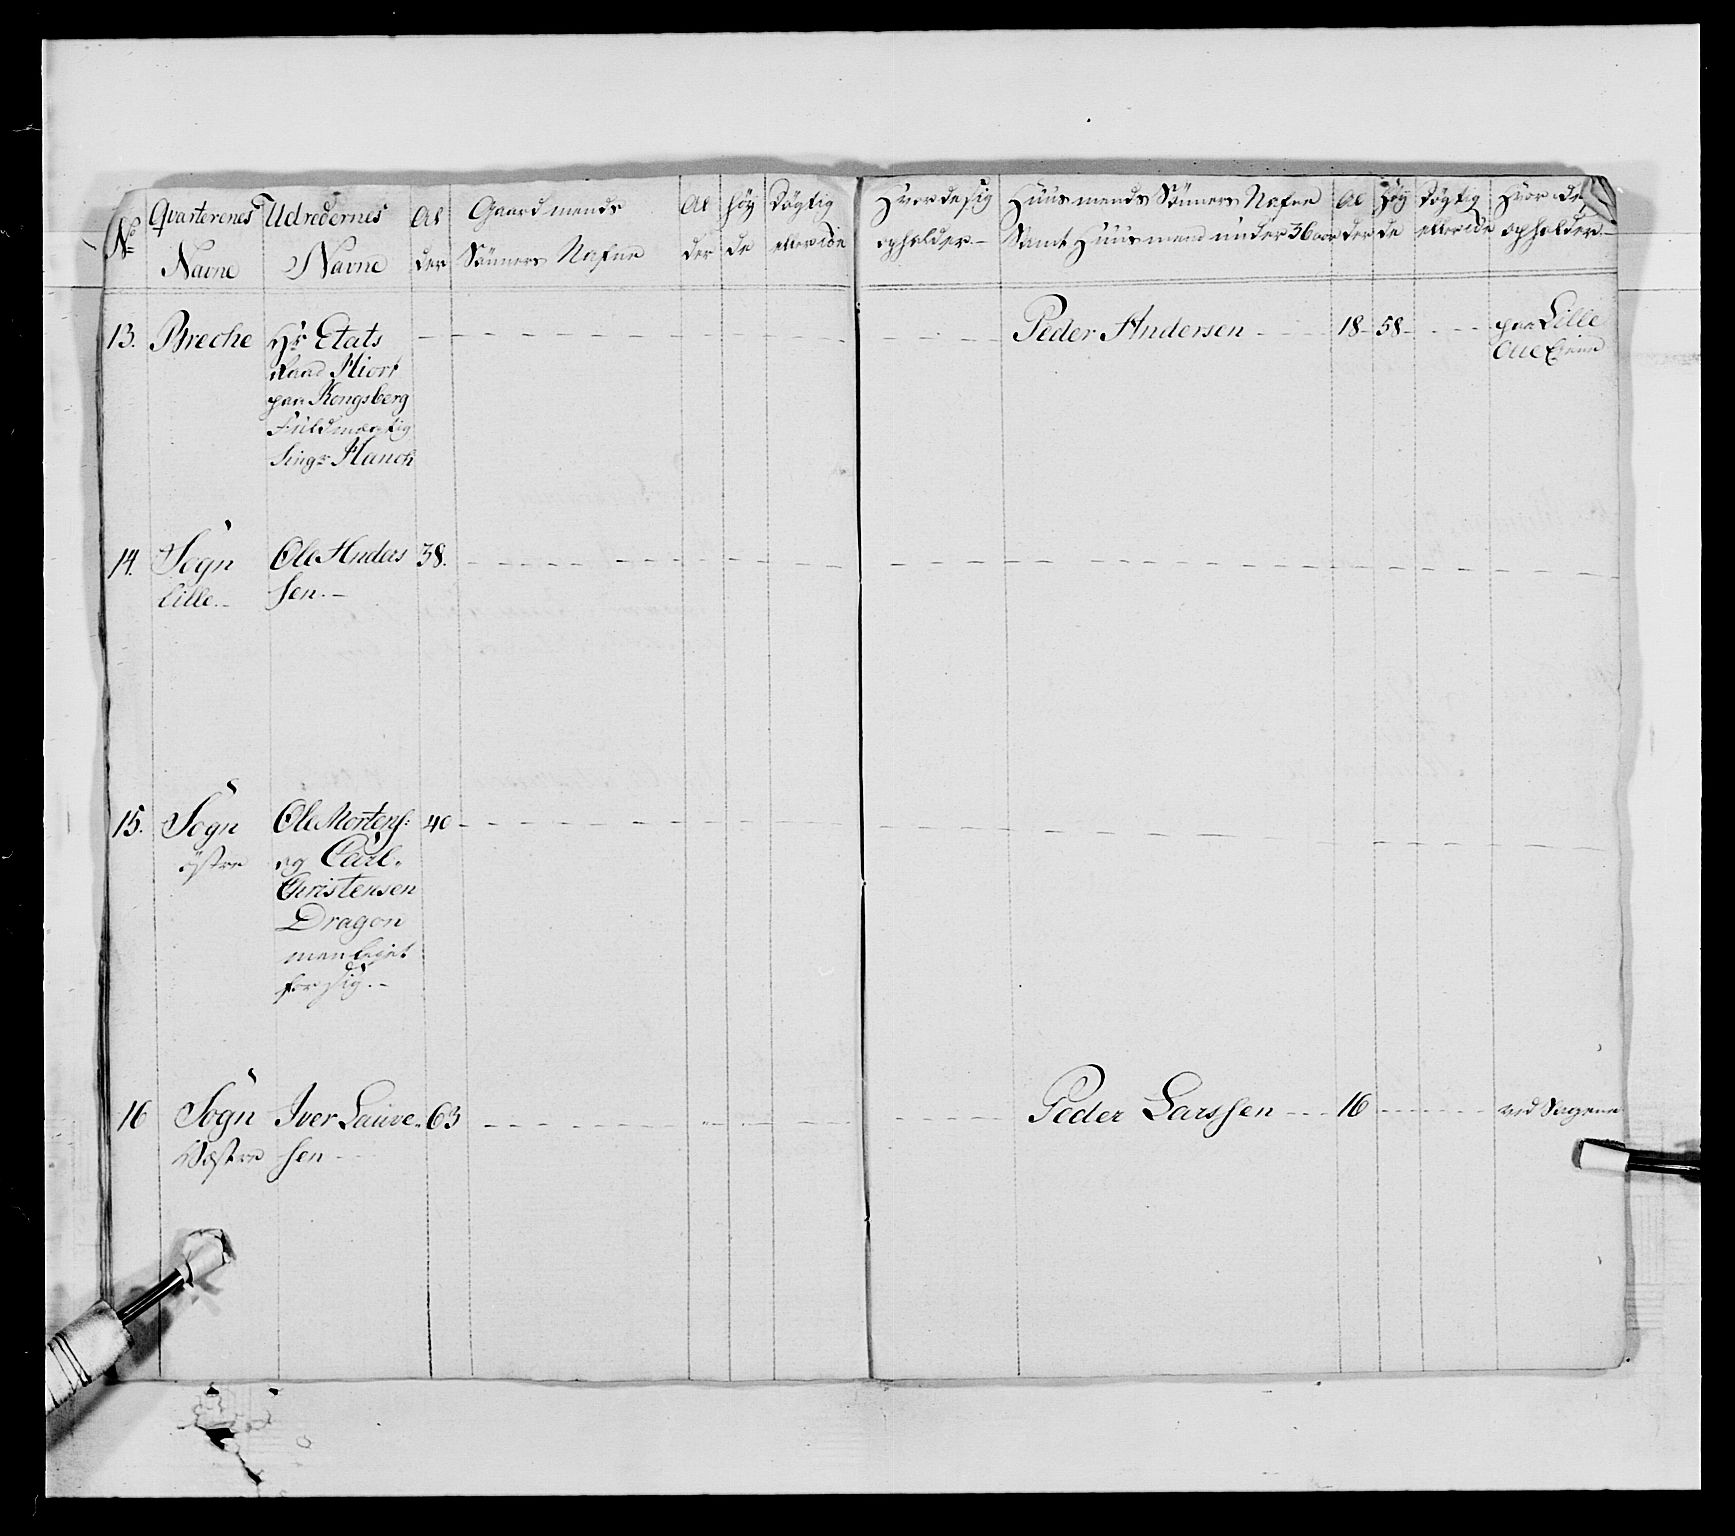 No Qvarterenes Navne
Udredernes Navne
Al der
Gaardmends Sönners Nafne
Al der
Høy de
Dögtig eller ide
Hvor de sig opholder.
Huusmends Sönners Nafne Samt Huusmend under 36 aar
Al der
Høy de
Dögtig eller ide
Hvor de opholder.
13. Breche
Hr Etats
Raad Hiort
paa Kongsberg
Fuldmægtig
Singr Hanch
Peder Andersen 18 58
paa Lille
14. Sogn
Lille.
Ole Anders
sen.
38.
15. Sogn
östre
Ole Mortens:
og Carl
Christensen
Dragon
for sig.
40
16 Sogn
Væstre
Iver Lauve
sen
63
Peder Larssen 16
ved Sagene